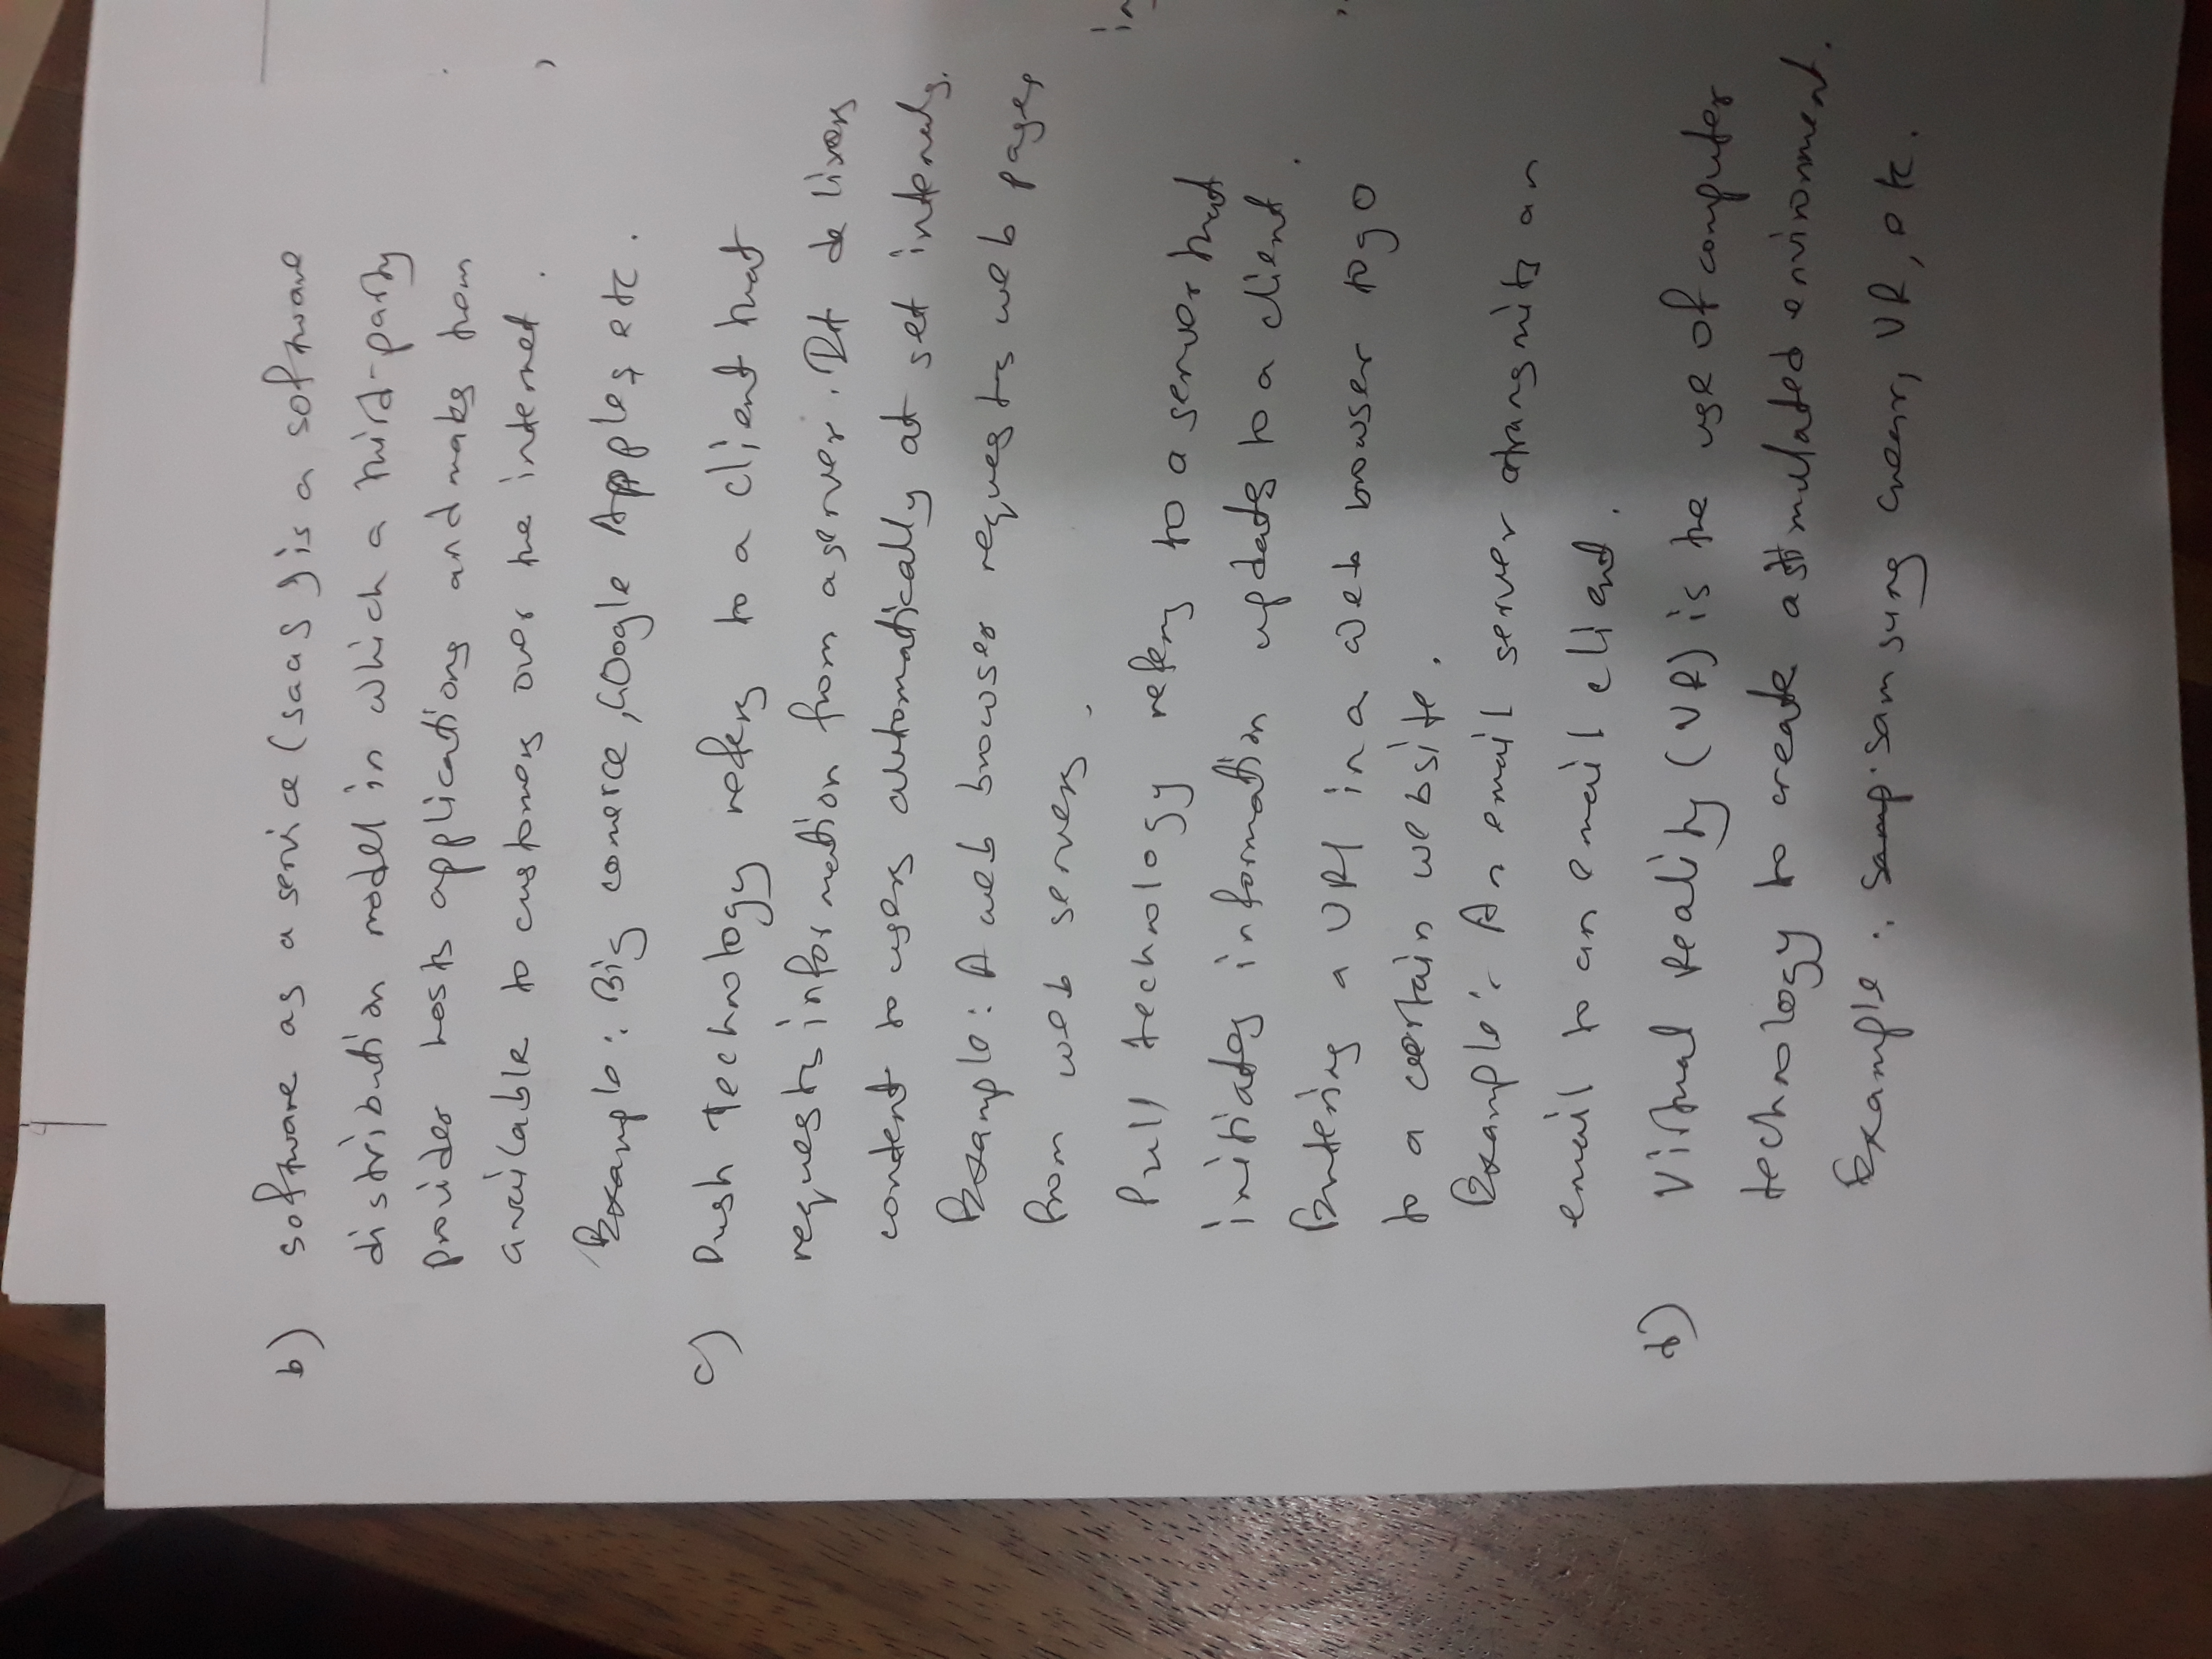 b) software as a service (saas) is a software
distribution model in which a third-party
provider hosts applications and makes them
available to customers over the internet.
Example: Big comerce, Google Appples etc.
c) Push Technology refers to a client that
requests information from a server. It delivers
content to users automatically at set intervals.
Example: A web browser requests web pages
from web servers.
Pull technology refers to a server that
initiates information updates to a client.
Entering a URl in a web browser to go
to a certain website.
Example: An email server transmits an
email to an email client.
d) Virtual Reality (VR) is the use of computer
technology to create a stimulated environment.
Example: samp. Samsung Gear, VR, etc.